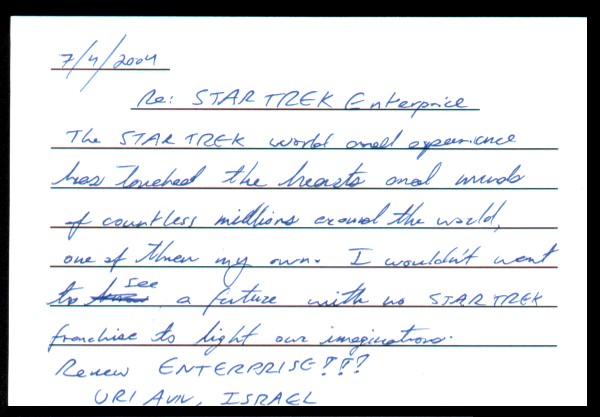 7/4/2004
Re: STAR TREK Enterprice
The STAR TREK world and experience
has touched the hearts and minds
of countless millions around the world,
one of them my own. I wouldn't want
to see a future with no STAR TREK
franchise to light our imaginations.
Renew ENTERPRISE!!!
URI AVIV, ISRAEL